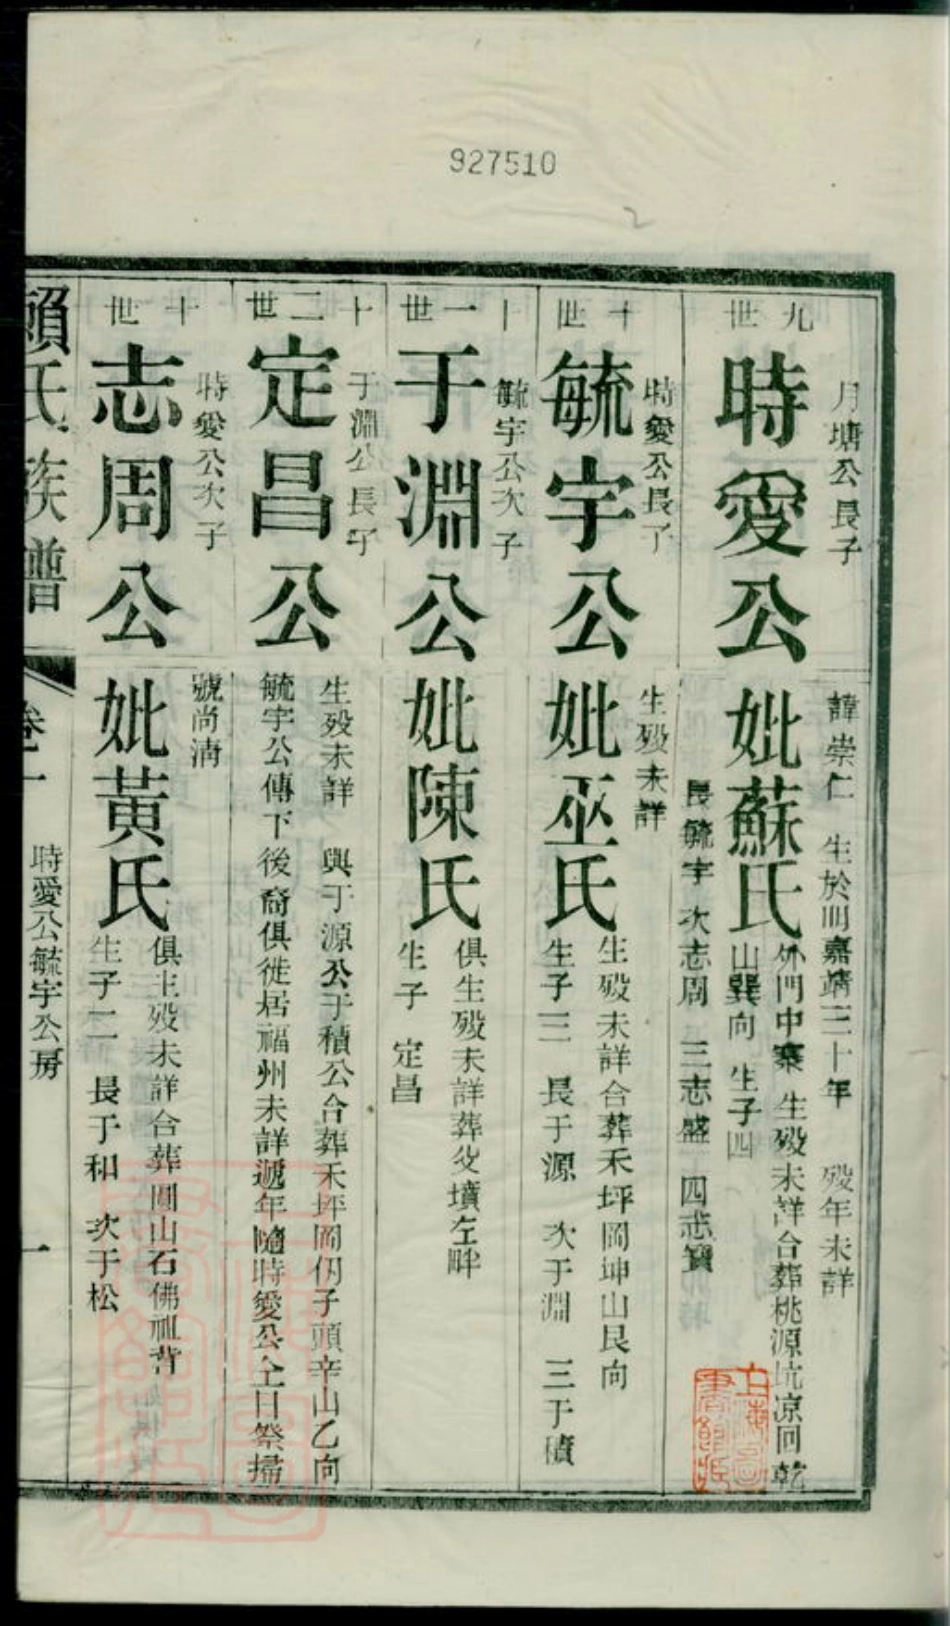 927510
2
九世
月塘公長子
時愛公
諱崇仁 生於明嘉靖三十年 歿年未詳
妣蘇氏
生歿未詳合葬桃源坑凉回乾
山巽向 生子四
長毓宇 次志周 三志盛 四志寶
十世
時愛公長子
毓宇公
生歿未詳
妣巫氏
生歿未詳合葬禾坪岡坤山艮向
生子三 長于源 次于淵 三于積
十一世
毓宇公次子
于淵公
妣陳氏
俱生歿未詳葬父墳左畔
生子 定昌
十二世
于淵公長子
定昌公
生歿未詳 與于源公于積公合葬禾坪岡仍子頭辛山乙向
毓宇公傳下後裔俱徙居福州未詳遞年隨時愛公仝日祭掃
十世
時愛公次子
志周公
號尚清
妣黃氏
俱生歿未詳合葬圓山石佛祖背
生子二 長于和 次于松
賴氏族譜
卷一
時愛公毓宇公房
一